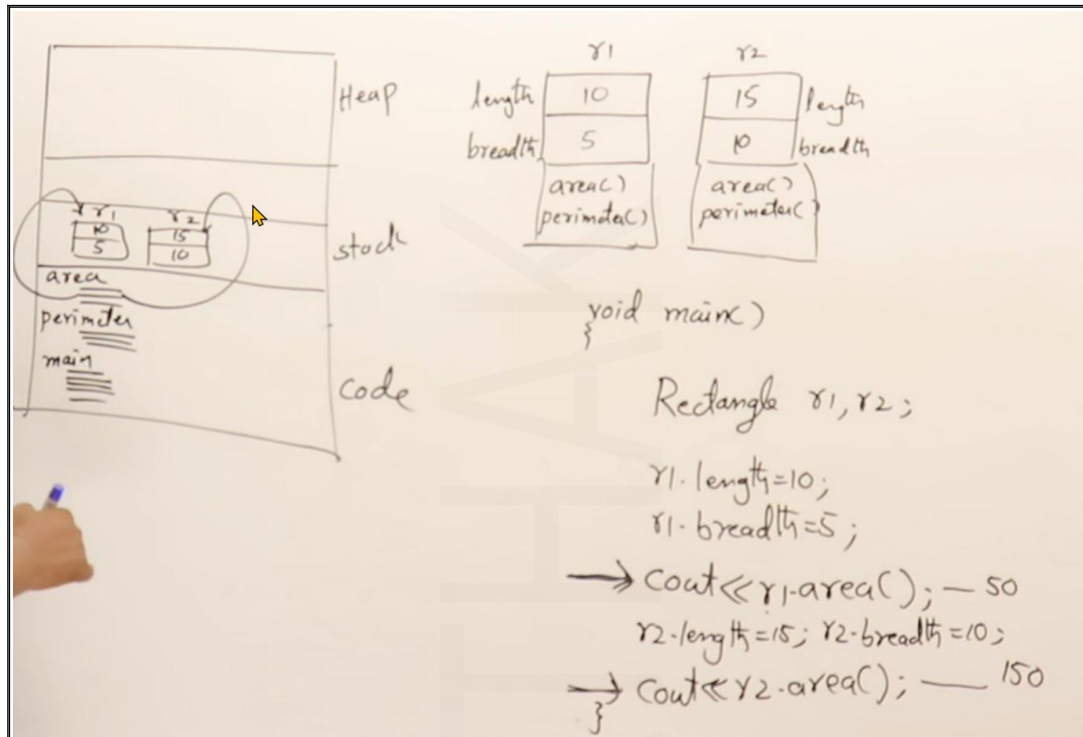 Heap
r1 r2
10 15
5 10
stack
area
perimeter
main
code
r1 r2
length 10 15 length
breadth 5 10 breadth
area() area()
perimeter() perimeter()
void main()
{
Rectangle r1, r2;
r1.length=10;
r1.breadth=5;
→ cout<<r1.area(); — 50
r2.length=15; r2.breadth=10;
→ cout<<r2.area(); — 150
}
THAK